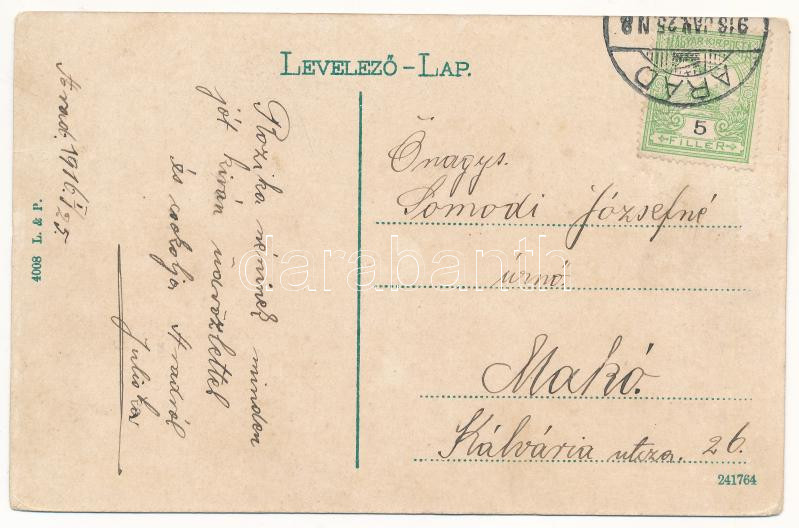 LEVELEZŐ-LAP.
Arad. 1916. I/25.
Rozika néninek minden
jót kiván üdvözlettel
és csókolja Aradról
Juliska
4008 L. & P.
916 JAN. 25. N 8
ARAD
MAGYAR KIR. POSTA
5
FILLÉR
Önagys.
Somodi Józsefné
úrnő
Makó.
Kálvária utcza. 26.
241764
darabanth